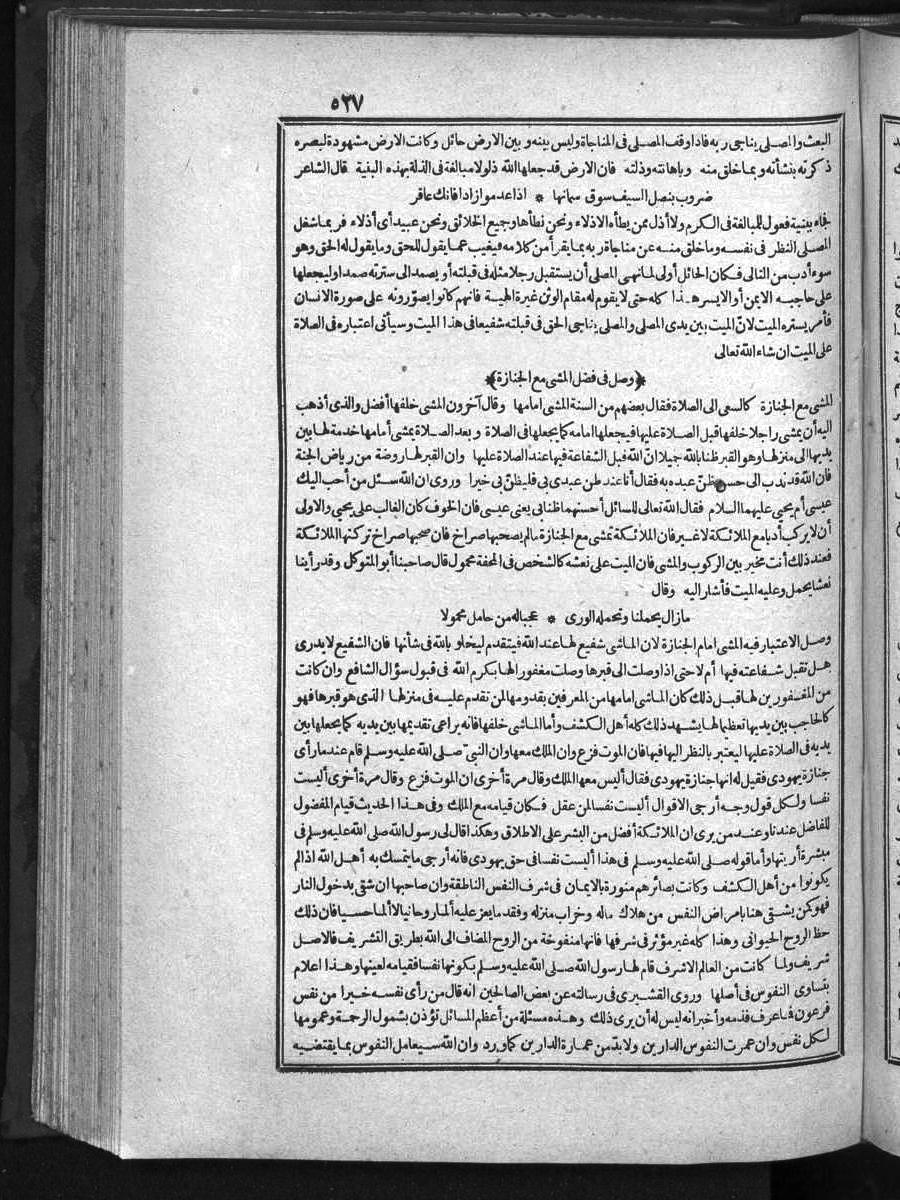 ٥٣٧
البعث والمصلي يناجي ربه فاذا وقف المصلي في المناجاة وليس بينه وبين الارض حائل وكانت الارض مشهودة لبصره
ذكرته بنشأته وبما خلق منه وباهانته وذلته فان الارض قد جعلها الله ذلولا مبالغة في الذلة بهذه البنية قال الشاعر
ضروب بنصل السيف سوق سمانها * اذا عدموا زادا فانك عاقر
فجاء ببنية فعول للمبالغة في الكرم ولا أذل ممن يطأه الاذلاء ونحن نطأها وجميع الخلائق ونحن عبيد أي أذلاء فربما شغل
المصلي النظر في نفسه وما خلق منه عن مناجاة ربه بما يقرأ من كلامه فيغيب عما يقول للحق وما يقول له الحق وهو
سوء أدب من التالي فكان الحائل أولى لما نهي المصلي أن يستقبل رجلا مثله في قبلته أو يصمد الى سترته صمدا وليجعلها
على حاجبه الايمن أو الايسر هذا كله حتى لا يقوم له مقام الوثن غيرة الهية فانهم كانوا يصوّرونه على صورة الانسان
فأمر بستره الميت لانّ الميت بين يدي المصلي والمصلي يناجي الحق في قبلته شفيعا في هذا الميت وسيأتي اعتباره في الصلاة
على الميت ان شاء الله تعالى
﴿وصل في فضل المشي مع الجنازة﴾
المشي مع الجنازة كالسعي الى الصلاة فقال بعضهم من السنة المشي امامها وقال آخرون المشي خلفها أفضل والذي أذهب
اليه أن يمشي راجلا خلفها قبل الصلاة عليها فيجعلها امامه كما يجعلها في الصلاة وبعد الصلاة يمشي أمامها خدمة لها بين
يديها الى منزلها وهو القبر ظنا بالله جميلا انّ الله قبل الشفاعة فيها عند الصلاة عليها وان القبر لها روضة من رياض الجنة
فان الله قد ندب الى حسن ظنّ عبده به فقال أنا عند ظن عبدي بي فليظنّ بي خيرا وروي ان الله سئل من أحب اليك
عيسى أم يحيى عليهما السلام فقال الله تعالى للسائل أحسنهما ظنا بي يعني عيسى فان الخوف كان الغالب على يحيى والاولى
أن لا يركب أدبا مع الملائكة لا غير فان الملائكة تمشي مع الجنازة ما لم يصحبها صراخ فان صحبها صراخ تركتها الملائكة
فعند ذلك أنت مخير بين الركوب والمشي فان الميت على نعشه كالشخص في المحفة محمول قال صاحبنا أبو المتوكل وقد رأينا
نعشا يحمل وعليه الميت فأشار اليه وقال
ما زال يحملنا وتحمله الورى * عجبا له من حامل محمولا
وصل الاعتبار فيه المشي امام الجنازة لان الماشي شفيع لها عند الله فيتقدم ليخلو بالله في شأنها فان الشفيع لا يدري
هل تقبل شفاعته فيها أم لا حتى اذا وصلت الى قبرها وصلت مغفورا لها بكرم الله في قبول سؤال الشافع وان كانت
من المغفورين لها قبل ذلك كان الماشي امامها من المعرفين بقدومها لمن تقدم عليه في منزلها الذي هو قبرها فهو
كالحاجب بين يديها تعظيما لها يشهد ذلك كله أهل الكشف وأما الماشي خلفها فانه يراعي تقديمها بين يديه كما يجعلها بين
يديه في الصلاة عليها ليعتبر بالنظر اليها فيها فان الموت فزع وان الملك معها وان النبيّ صلى الله عليه وسلم قام عندما رأى
جنازة يهودي فقيل له انها جنازة يهودي فقال أليس معها الملك وقال مرة أخرى ان الموت فزع وقال مرة أخرى أليست
نفسا ولكل قول وجه أرجى الاقوال أليست نفسا لمن عقل فكان قيامه مع الملك وفي هذا الحديث قيام المفضول
للفاضل عندنا وعند من يرى ان الملائكة أفضل من البشر على الاطلاق وهكذا قال لي رسول الله صلى الله عليه وسلم في
مبشرة أريتها وأما قوله صلى الله عليه وسلم في هذا أليست نفسا في حق يهودي فانه أرجى ما يتمسك به أهل الله اذا لم
يكونوا من أهل الكشف وكانت بصائرهم منورة بالايمان في شرف النفس الناطقة وان صاحبها ان شقي بدخول النار
فهو كمن يشقى هنا بامراض النفس من هلاك ماله وخراب منزله وفقد ما يعز عليه ألما روحانيا لا ألما حسيا فان ذلك
حظ الروح الحيواني وهذا كله غير مؤثر في شرفها فانها منفوخة من الروح المضاف الى الله بطريق التشريف فالاصل
شريف ولما كانت من العالم الاشرف قام لها رسول الله صلى الله عليه وسلم بكونها نفسا فقيامه لعينها وهذا اعلام
بتساوي النفوس في أصلها وروى القشيري في رسالته عن بعض الصالحين انه قال من رأى نفسه خيرا من نفس
فرعون فما عرف فذمه وأخبر انه ليس له أن يرى ذلك وهذه مسئلة من أعظم المسائل تؤذن بشمول الرحمة وعمومها
لكل نفس وان عمرت النفوس الدارين ولا بدّ من عمارة الدارين كما ورد وان الله سيعامل النفوس بما يقتضيه